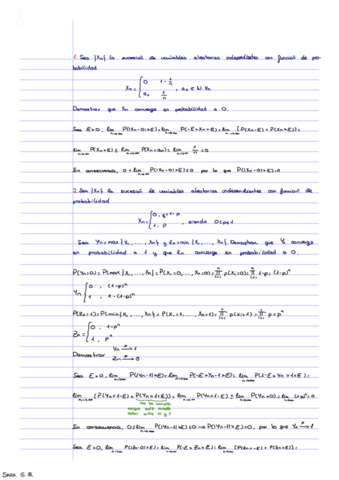 1. Sea {Xn} la sucesión de variables aleatorias independientes con función de pro-
babilidad
Xn = { 0 1 - 1/n
an 1/n , an ∈ ℕ ∀n
Demostrar que Xn converge en probabilidad a 0.
Sea ε>0, lim P(|Xn-0|>ε) = lim P(-ε>Xn>ε) = lim [P(Xn<-ε) + P(Xn>ε)] =
lim P(Xn>ε) ≤ lim P(Xn=an) = lim 1/n = 0
En consecuencia, 0 ≤ lim P(|Xn-0|>ε) ≤ 0 por lo que P(|Xn-0|>ε)=0
2. Sea {Xn} la sucesión de variables aleatorias independientes con función de
probabilidad
Xn = { 0, q=1-p
1, p , siendo 0<p<1
Sea Yn = max{X1, ..., Xn} y Zn = min{X1, ..., Xn}. Demostrar que Yn converge
en probabilidad a 1 y que Zn converge en probabilidad a 0.
P(Yn=0) = P(max{X1, ..., Xn}) = P(X1=0, ..., Xn=0) = ∏ P(Xi=0) = ∏ 1-p = (1-p)^n
Yn { 0 , (1-p)^n
1 , 1-(1-p)^n
P(Zn=1) = P(min{X1, ..., Xn}) = P(X1=1, ..., Xn=1) = ∏ P(Xi=1) = ∏ p = p^n
Zn = { 0 , 1-p^n
1, p^n
Demostrar Yn → 1
Zn → 0
Sea ε>0, lim P(|Yn-1|>ε) = lim P(-ε>Yn-1>ε) = lim P(1-ε>Yn>1+ε) =
lim (P(Yn<1-ε) + P(Yn>1+ε)) = lim P(Yn<1-ε) ≤ lim P(Yn=0) = lim (1-p)^n = 0
En consecuencia, 0 ≤ lim P(|Yn-1|>ε) ≤ 0 → P(|Yn-1|>ε)=0, por lo que Yn → 1
Sea ε>0, lim P(|Zn-0|>ε) = lim P(-ε>Zn>ε) = lim [P(Zn<-ε) + P(Zn>ε)] =
Sara G. R.